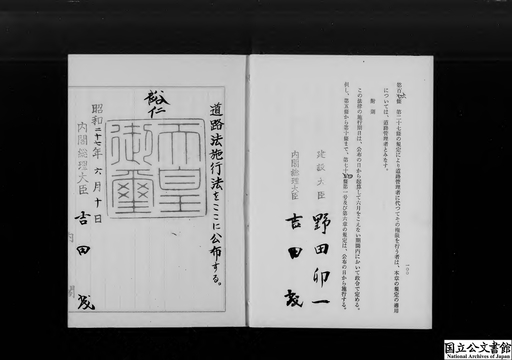 第百八條 第二十七條の規定により道路管理者に代つてその権限を行う者は、本章の規定の適用
については、道路管理者とみなす。
附則
この法律の施行期日は、公布の日から起算して六月をこえない期間内において政令で定める。
但し、第五條から第十條まで、第七十九條第一号及び第六章の規定は、公布の日から施行する。
建設大臣 野田卯一
内閣総理大臣 吉田茂
道路法施行法をここに公布する。
裕仁
天皇
御璽
昭和二十七年六月十日
内閣総理大臣 吉田茂
内閣
国立公文書館
National Archives of Japan